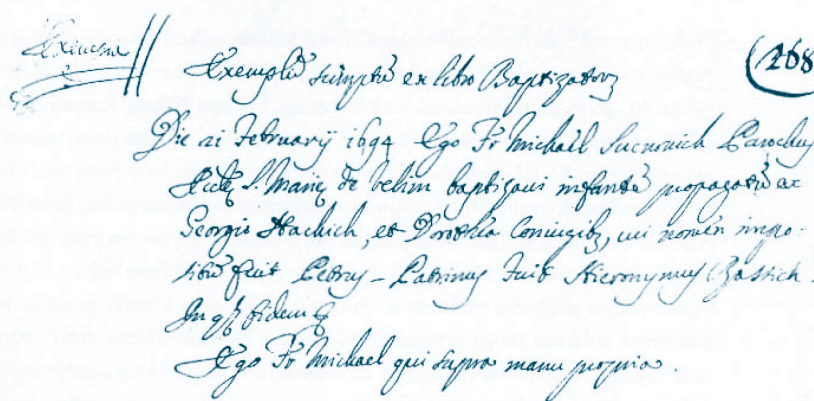 (268
Exemplũ sũmptũ ex libro Baptizatorȝ
Die 21 Februarÿ 1694 Ego Fr Michaël Sucnovich Parochus
Eccłę S. Marię de Velim baptizaui infantẽ propagatũ ex
Georgio Hachich, et Dorothea Coniugibȝ, cui nomẽn impo-
sitũ fuit Petrus – Patrinus Fuit Hieronymus Bassich.
In qȝ fidem
Ego Fr Michael qui supra manu propria